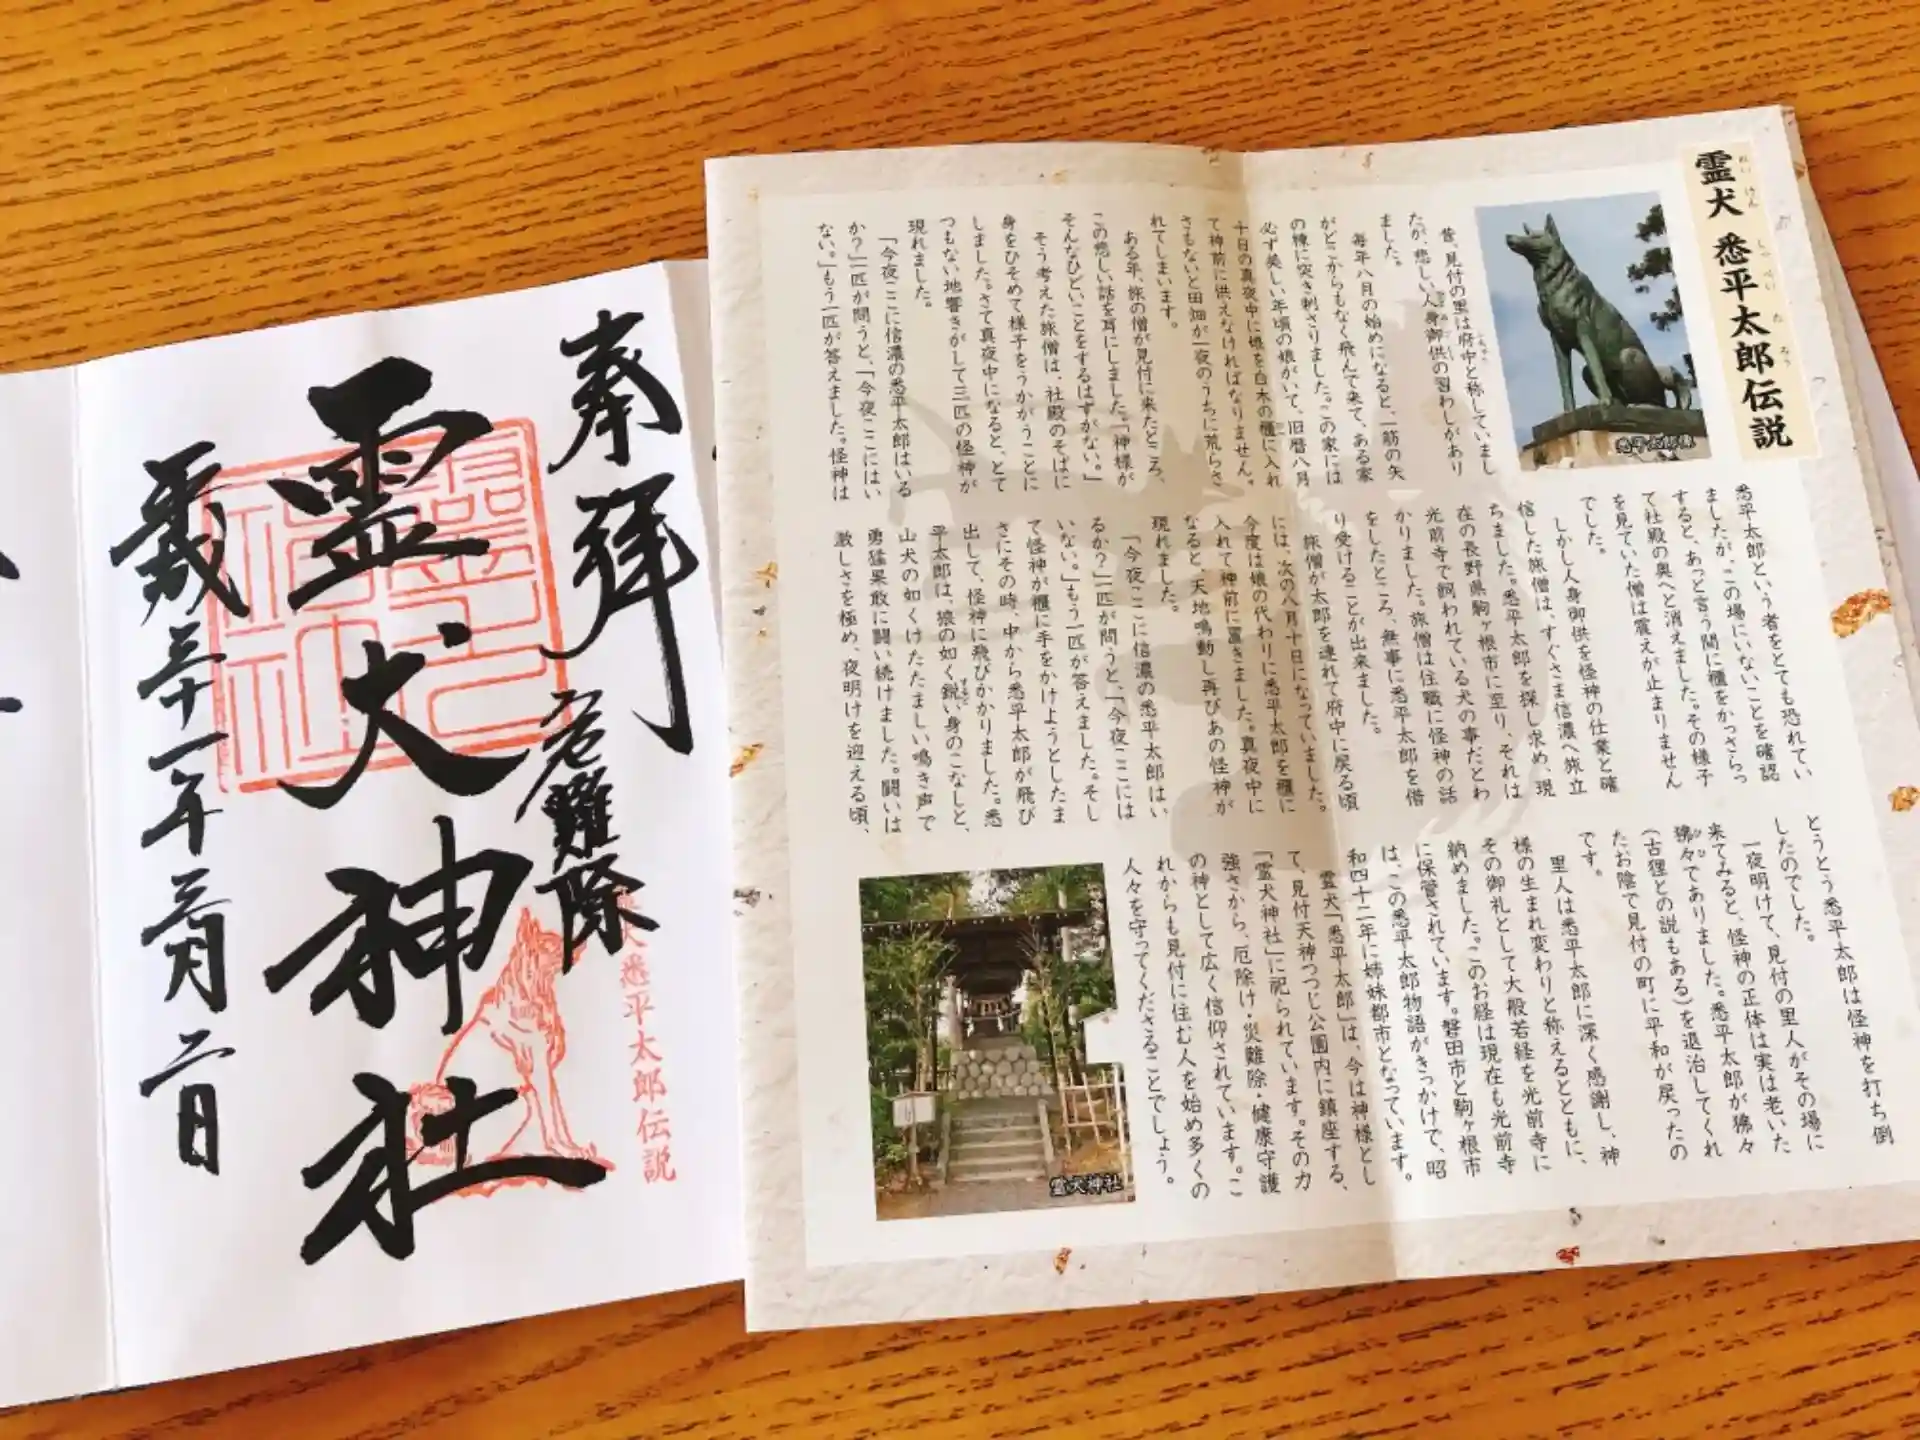 奉拝
危難除
霊犬神社
平成三十一年三月二日
悉平太郎伝説
霊犬 悉平太郎伝説
れいけん しっぺいたろう
悉平太郎像
昔、見付の里は府中と称していまし
たが、悲しい人身御供の習わしがあり
ました。
毎年八月の始めになると、一筋の矢
がどこからもなく飛んで来て、ある家
の棟に突き刺さりました。この家には
必ず美しい年頃の娘がいて、旧暦八月
十日の真夜中に娘を白木の櫃に入れ
て神前に供えなければなりません。
さもないと田畑が一夜のうちに荒らさ
れてしまいます。
ある年、旅の僧が見付に来たところ、
この悲しい話を耳にしました。「神様が
そんなひどいことをするはずがない。」
そう考えた旅僧は、社殿のそばに
身をひそめて様子をうかがうことに
しました。さて真夜中になると、とて
つもない地響きがして三匹の怪神が
現れました。
「今夜ここに信濃の悉平太郎はいる
か？」一匹が問うと、「今夜ここにはい
ない。」もう一匹が答えました。怪神は
悉平太郎という者をとても恐れてい
ましたが、この場にいないことを確認
すると、あっと言う間に櫃をかっさらっ
て社殿の奥へと消えました。その様子
を見ていた僧は震えが止まりません
でした。
しかし人身御供を怪神の仕業と確
信した旅僧は、すぐさま信濃へ旅立
ちました。悉平太郎を探し求め、現
在の長野県駒ヶ根市に至り、それは
光前寺で飼われている犬の事だとわ
かりました。旅僧は住職に怪神の話
をしたところ、無事に悉平太郎を借
り受けることが出来ました。
旅僧が太郎を連れて府中に戻る頃
には、次の八月十日になっていました。
今度は娘の代わりに悉平太郎を櫃に
入れて神前に置きました。真夜中に
なると、天地鳴動し再びあの怪神が
現れました。
「今夜ここに信濃の悉平太郎はい
るか？」一匹が問うと、「今夜ここには
いない。」もう一匹が答えました。そし
て怪神が櫃に手をかけようとしたま
さにその時、中から悉平太郎が飛び
出して、怪神に飛びかかりました。悉
平太郎は、狼の如く鋭い身のこなしと、
山犬の如くけたたましい鳴き声で
勇猛果敢に闘い続けました。闘いは
激しさを極め、夜明けを迎える頃、
とうとう悉平太郎は怪神を打ち倒
したのでした。
一夜明けて、見付の里人がその場に
来てみると、怪神の正体は実は老いた
狒々でありました。悉平太郎が狒々
（古狸との説もある）を退治してくれ
たお陰で見付の町に平和が戻ったの
です。
里人は悉平太郎に深く感謝し、神
様の生まれ変わりと称えるとともに、
その御礼として大般若経を光前寺に
納めました。このお経は現在も光前寺
に保管されています。磐田市と駒ヶ根市
は、この悉平太郎物語がきっかけで、昭
和四十二年に姉妹都市となっています。
霊犬「悉平太郎」は、今は神様とし
て、見付天神つつじ公園内に鎮座する、
「霊犬神社」に祀られています。その力
強さから、厄除け・災難除・健康守護
の神として広く信仰されています。こ
れからも見付に住む人を始め多くの
人々を守ってくださることでしょう。
霊犬神社